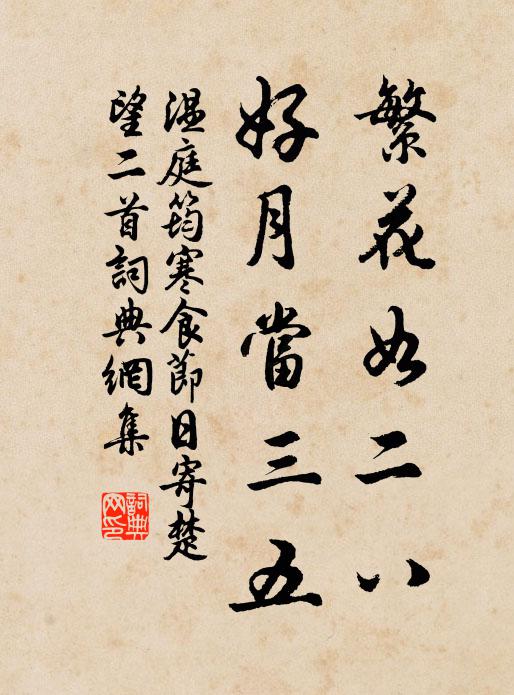 繁花如二八
好月當三五
溫庭筠寒食節日寄楚
望二首詞典網集
詞典網印